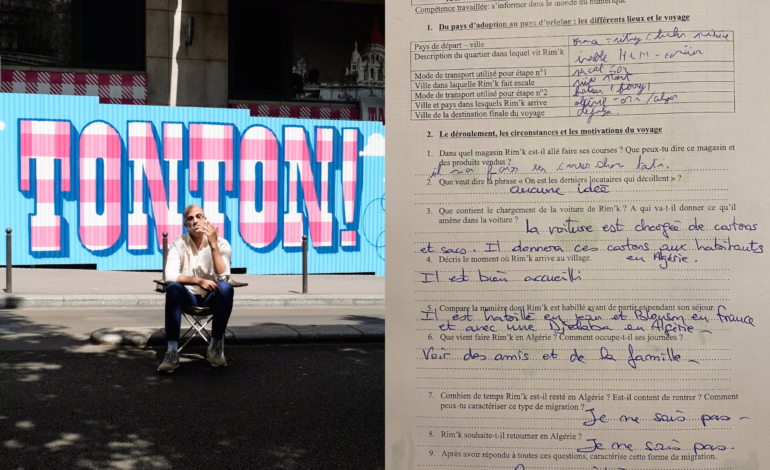 TONTON!
Compétence travaillée: s'informer dans le monde du numérique
1. Du pays d'adoption au pays d'origine : les différents lieux et le voyage
Pays de départ – ville
Description du quartier dans lequel vit Rim'k
Mode de transport utilisé pour étape n°1
Ville dans laquelle Rim'k fait escale
Mode de transport utilisé pour étape n°2
Ville et pays dans lesquels Rim'k arrive
Ville de la destination finale du voyage
2. Le déroulement, les circonstances et les motivations du voyage
1. Dans quel magasin Rim'k est-il allé faire ses courses ? Que peux-tu dire ce magasin et
des produits vendus ?
2. Que veut dire la phrase « On est les derniers locataires qui décollent » ?
aucune idée
3. Que contient le chargement de la voiture de Rim'k ? A qui va-t-il donner ce qu'il
amène dans la voiture ?
la voiture est chargée de cartons
et sacs. Il donnera ces cartons aux habitants
en Algérie.
4. Décris le moment où Rim'k arrive au village.
Il est bien accueilli
5. Compare la manière dont Rim'k est habillé avant de partir et pendant son séjour.
Il est habillé en jean et Blouson en france
et avec une Djellaba en Algérie
6. Que vient faire Rim'k en Algérie ? Comment occupe-t-il ses journées ?
Voir des amis et de la famille
7. Combien de temps Rim'k est-il resté en Algérie ? Est-il content de rentrer ? Comment
peux-tu caractériser ce type de migration ?
Je ne sais pas
8. Rim'k souhaite-t-il retourner en Algérie ?
Je ne sais pas
9. Après avoir répondu à toutes ces questions, caractérise cette forme de migration.